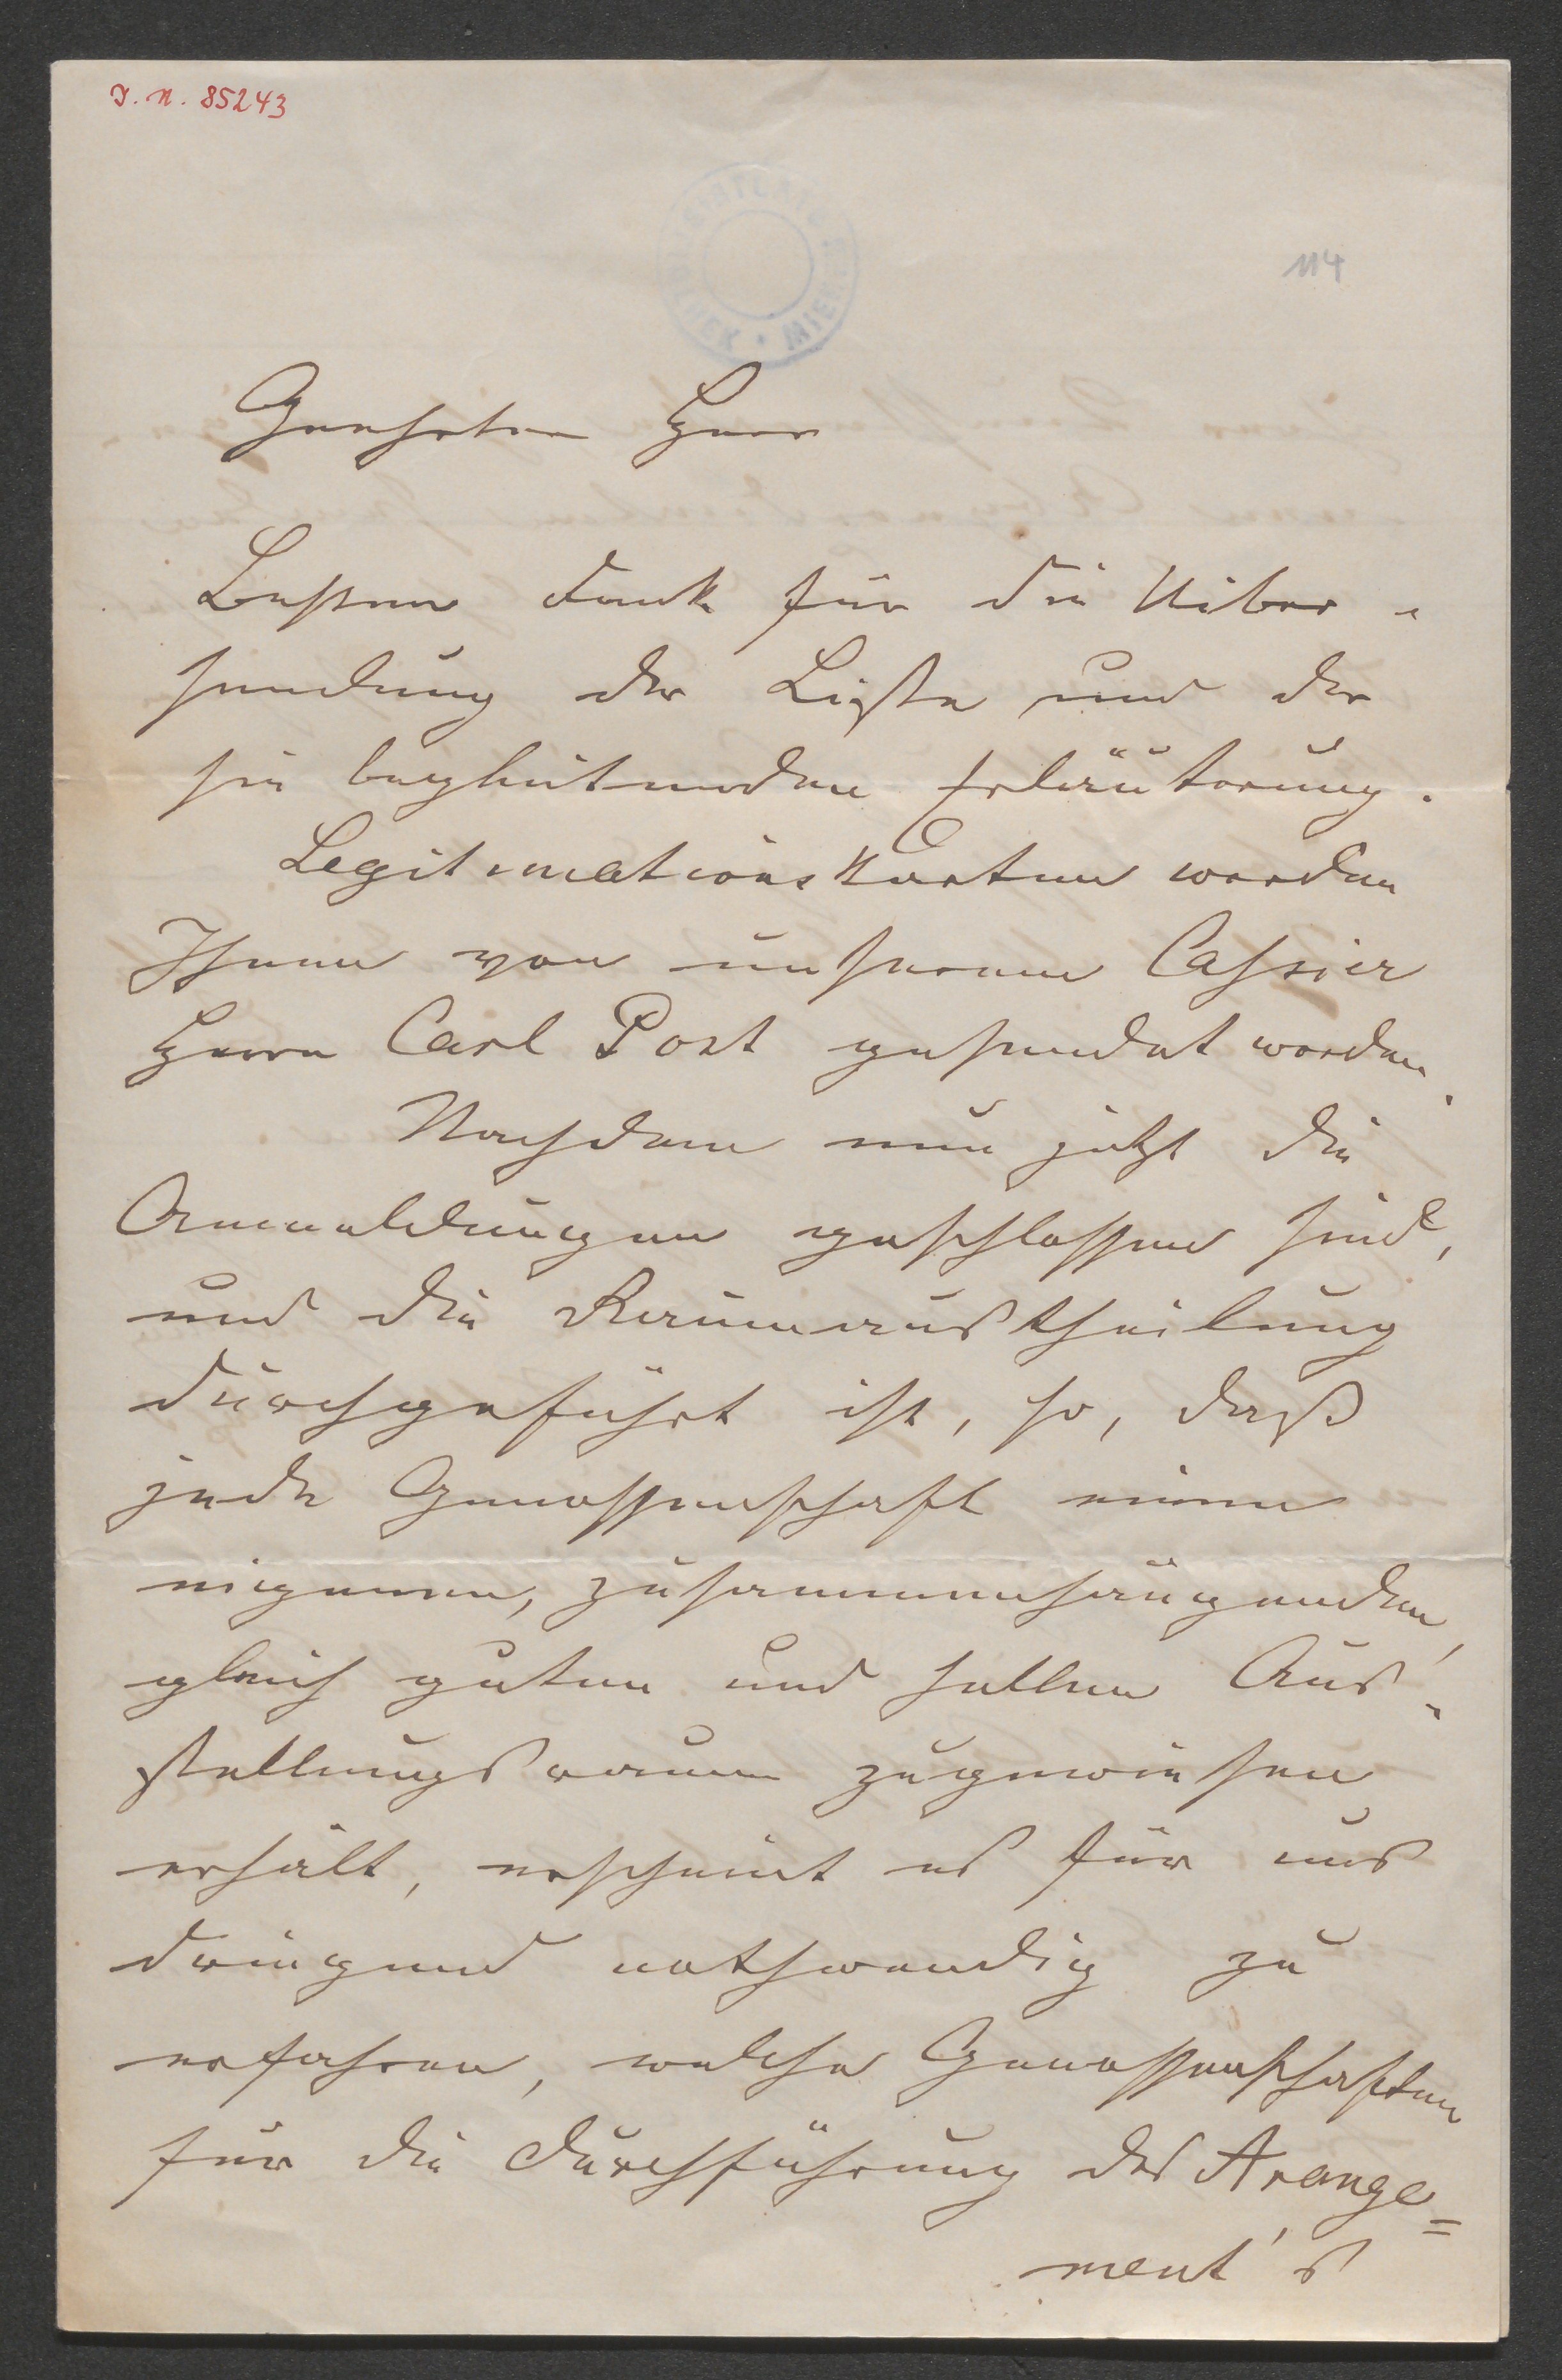 I. N. 85243
114
Geehrter Herr
Besten Dank für die Uiber-
sendung der Liste und der
sie begleitenden Erläuterung.
Legitimationskarten werden
Ihnen von unserem Cassier
Herrn Carl Post gesendet werden.
Nachdem nun jetzt die
Anmeldungen geschlossen sind,
und die Raumaustheilung
durchgeführt ist, so, daß
jede Genossenschaft einen
eigenen, zusammenhängenden,
gleich guten und hellen Aus-
stellungsraum zugewiesen
erhält, erscheint es für uns
dringend nothwendig zu
erfahren, welche Genossenschaften
für die Durchführung des Arange=
ment's